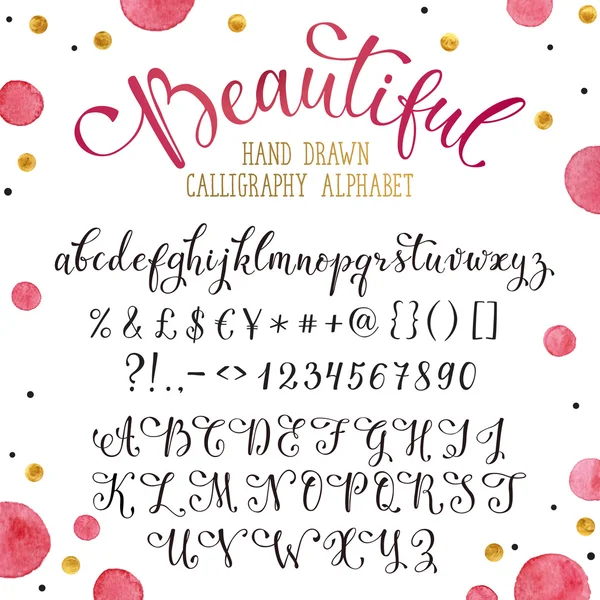 Beautiful
HAND DRAWN
CALLIGRAPHY ALPHABET
abcdefghijklmnopqrstuvwxyz
% & £ $ € ¥ * # + @ { } ( ) [ ]
? ! . , - < > 1 2 3 4 5 6 7 8 9 0
A B C D E F G H I J
K L M N O P Q R S T
U V W X Y Z